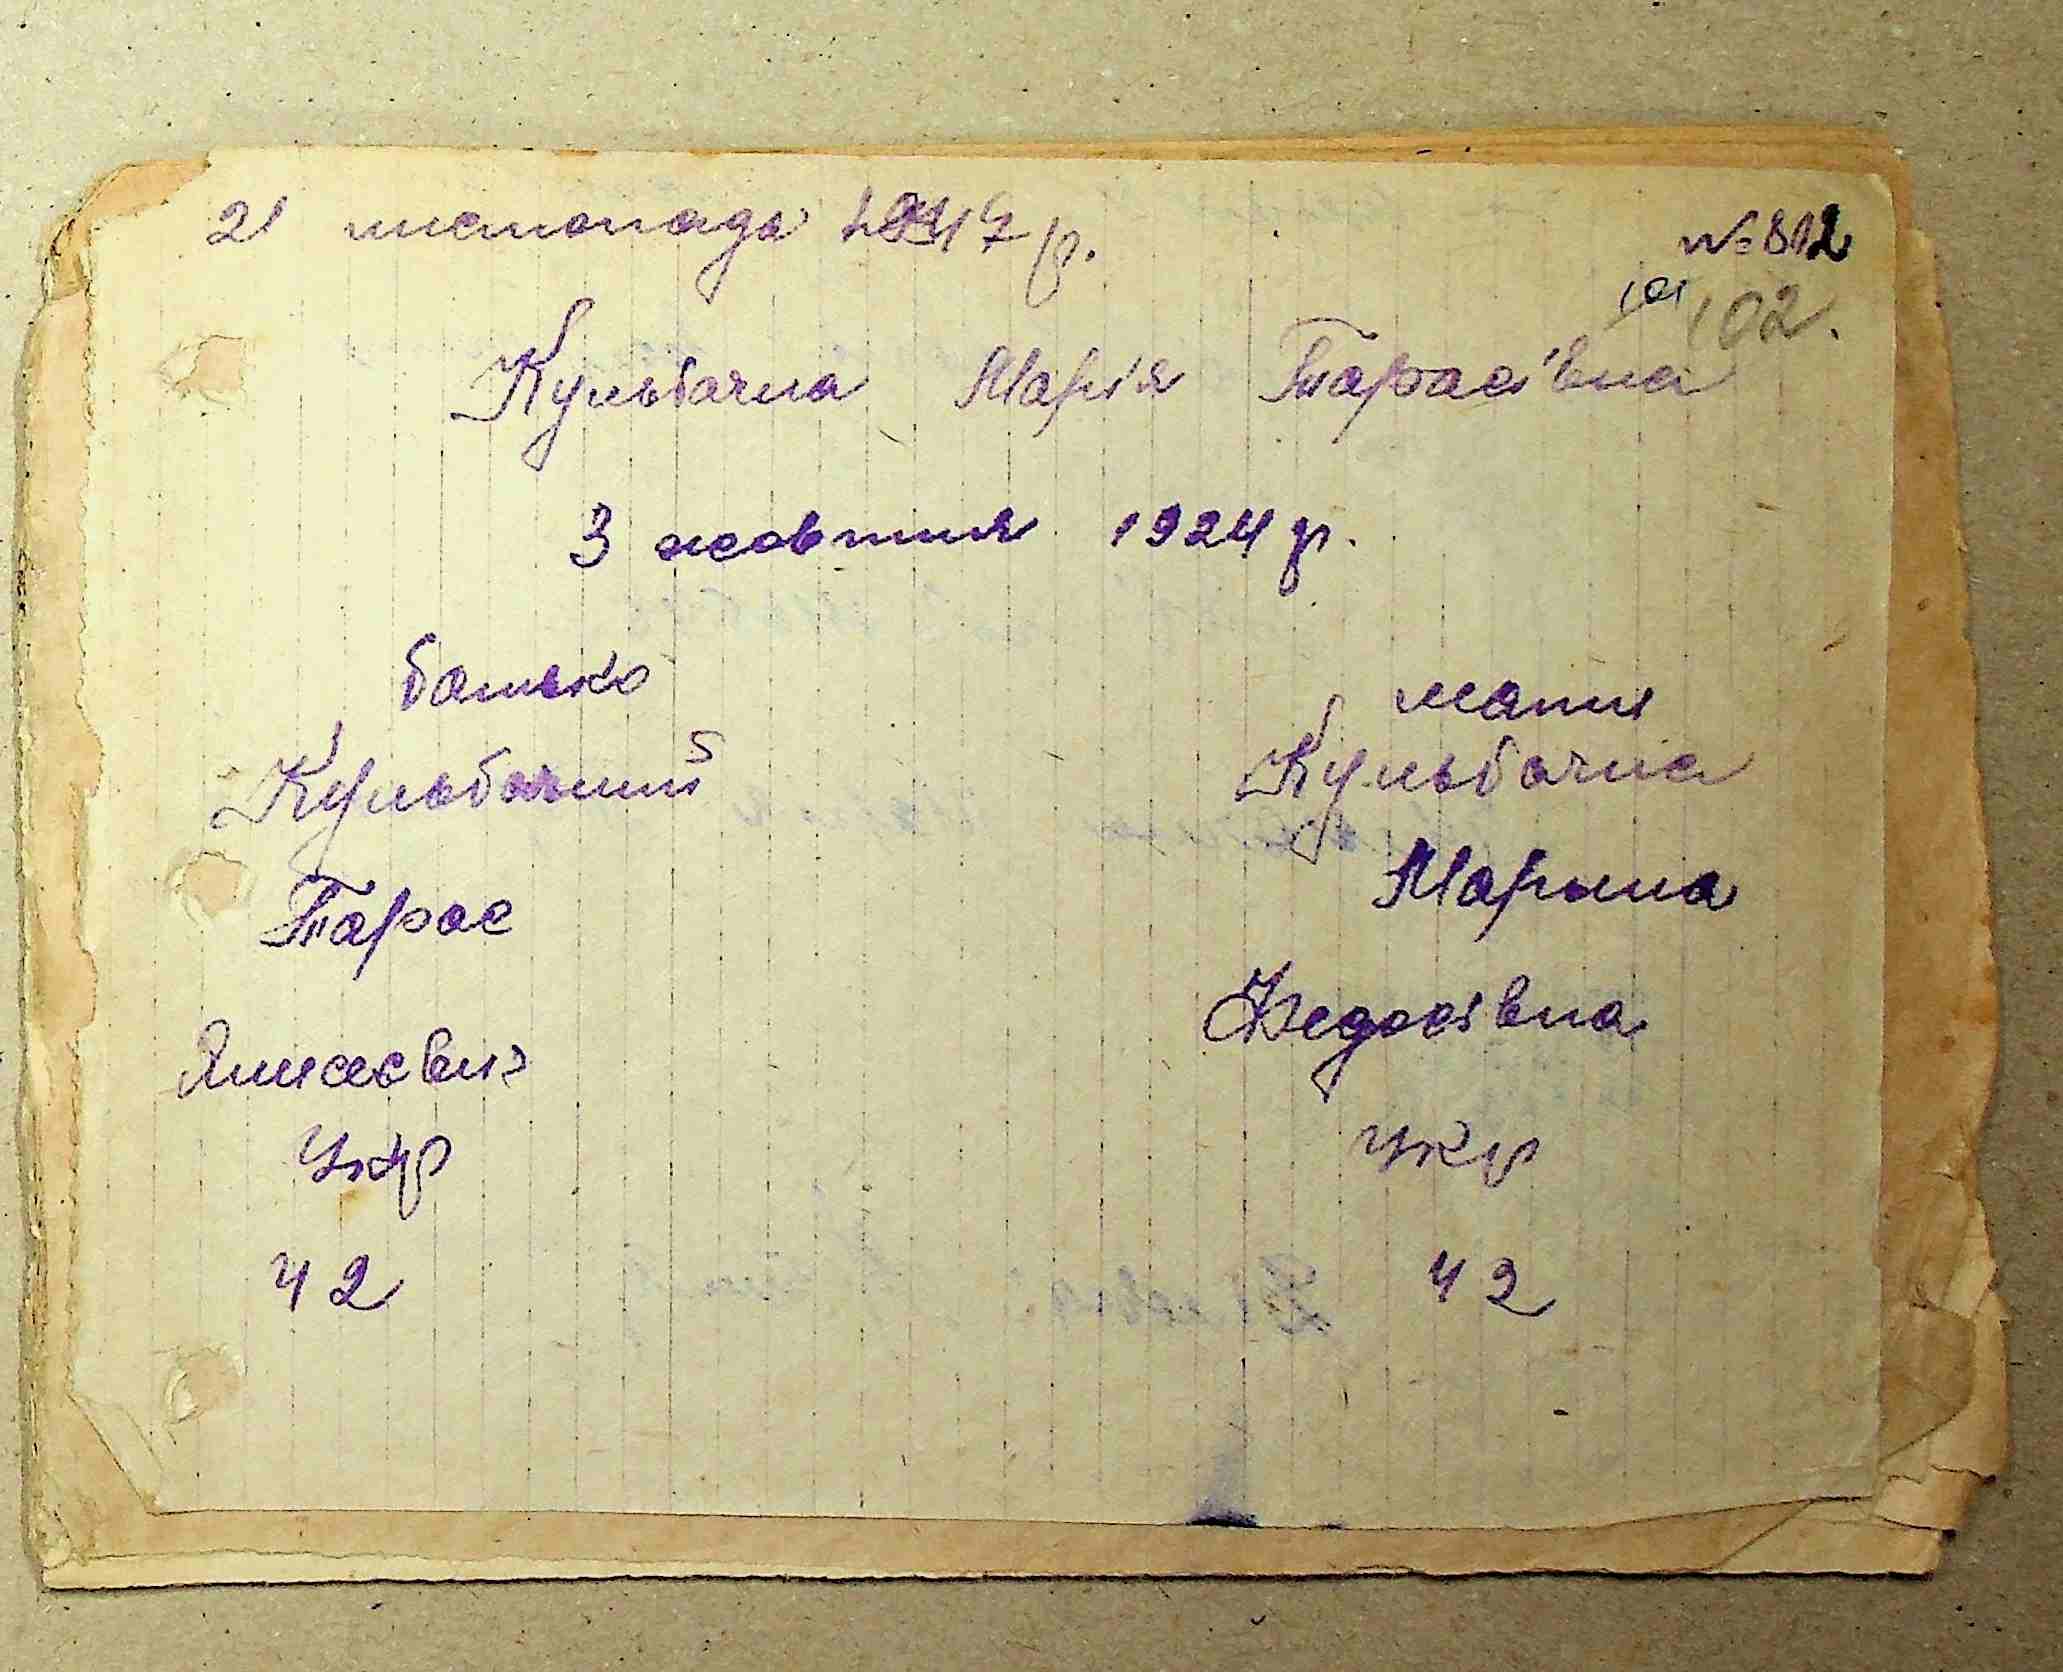 21 листопада 1947 р. №812
101 102.
Кульбачна Марія Тарасівна
3 жовтня 1924 р.
батько мати
Кульбачний Кульбачна
Тарас Марина
Федосівна
Укр Укр
42 42